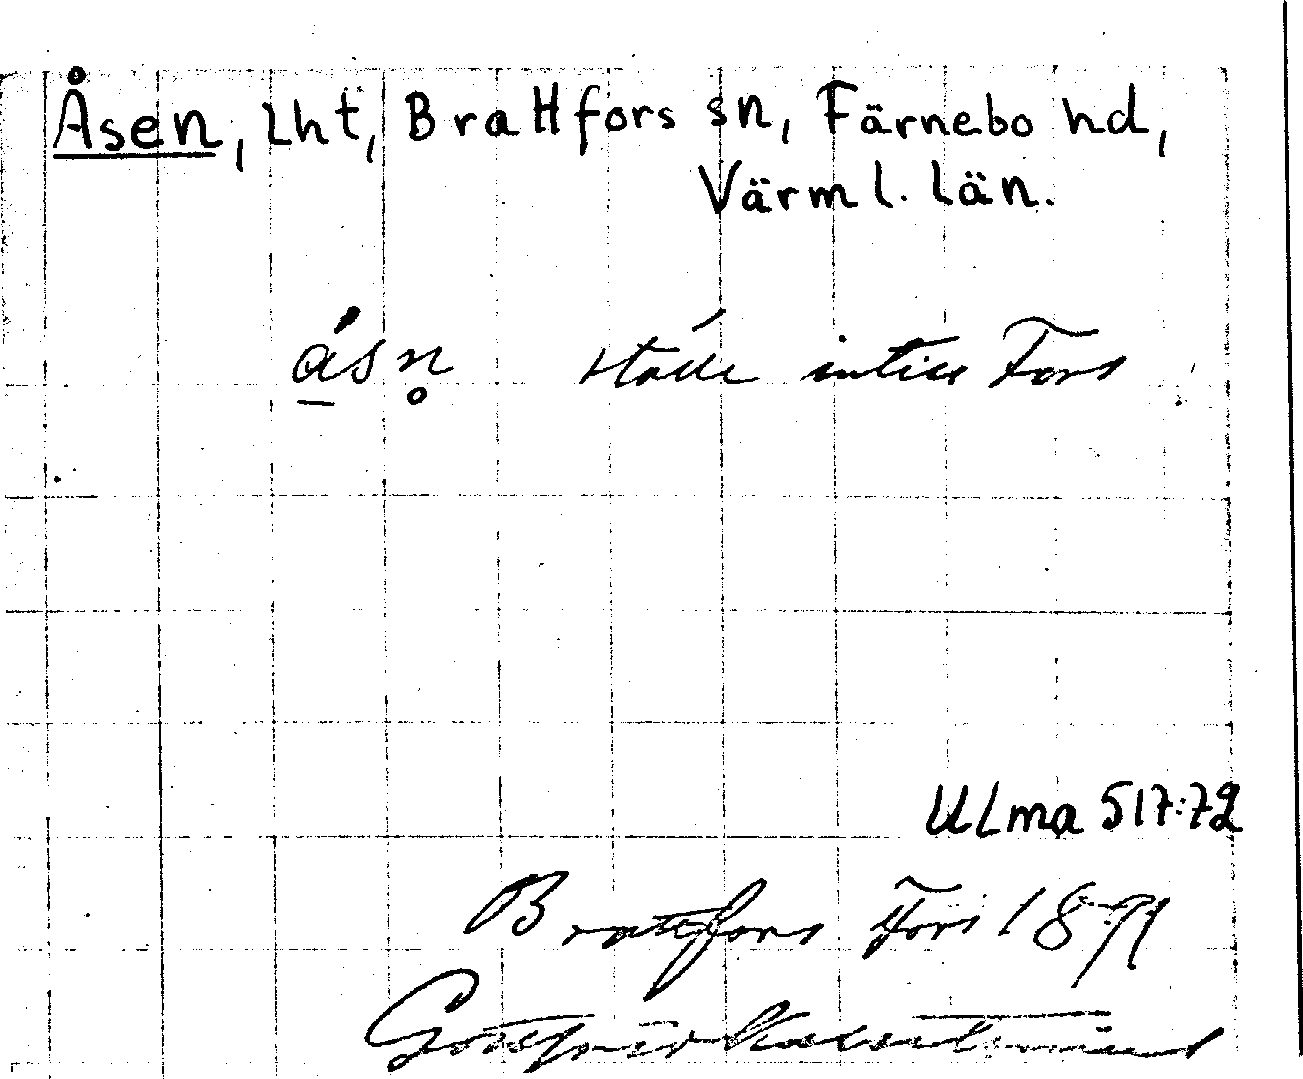 Åsen, Lht, Brattfors sn, Färnebo hd,
Värml. län.
ásn̥ ställe intill Fors
ULma 517:72
Brattfors Fors 1879
Gottfrid Kallstenius